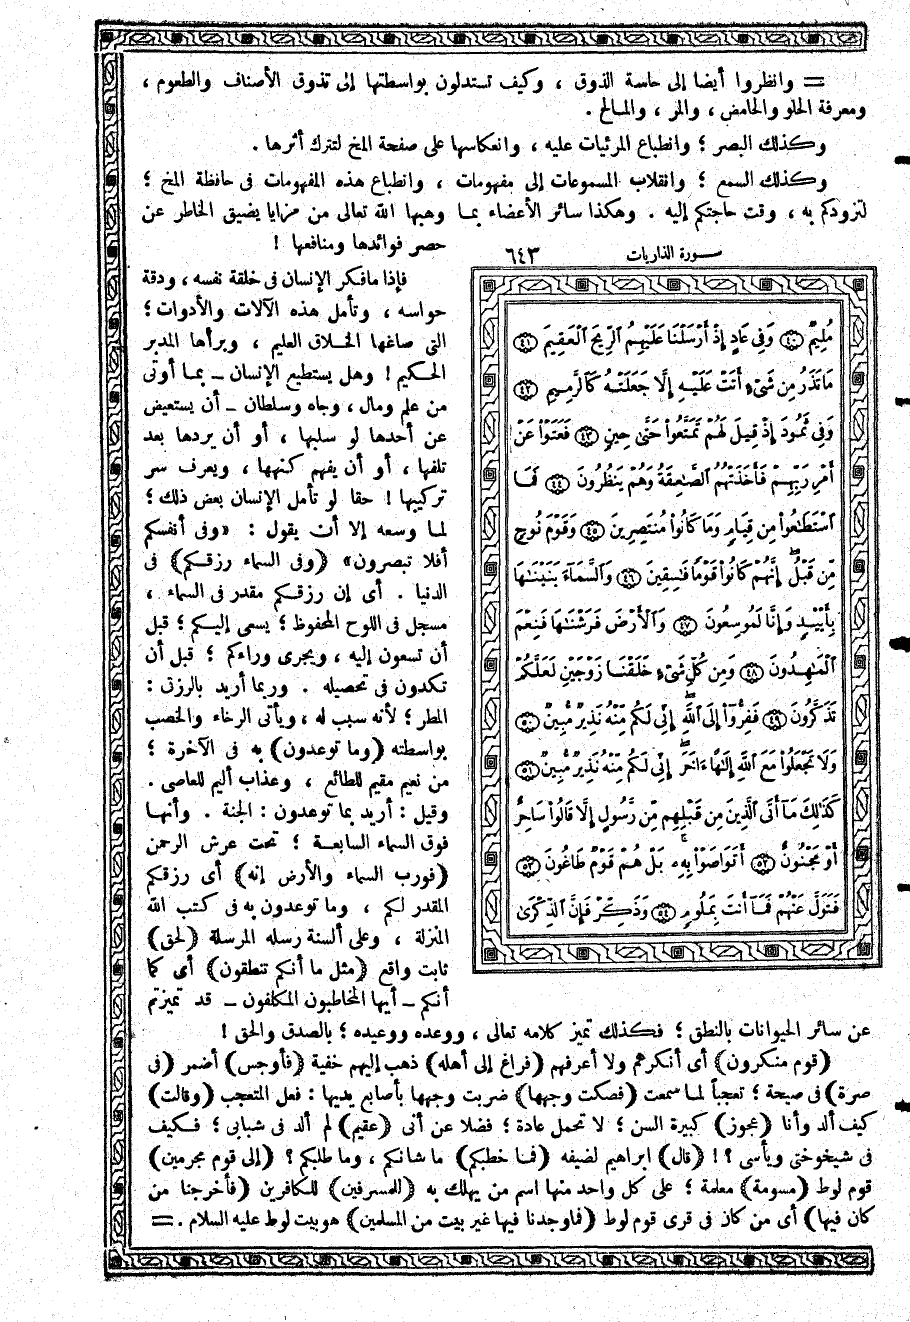 = وانظروا أيضا إلى حاسة الذوق ، وكيف تستدلون بواسطتها إلى تذوق الأصناف والطعوم ،
ومعرفة الحلو والحامض ، والمر ، والمالح .
وكذلك البصر ؛ وانطباع المرئيات عليه ، وانعكاسها على صفحة المخ لتترك أثرها .
وكذلك السمع ؛ وانقلاب المسموعات إلى مفهومات ، وانطباع هذه المفهومات فى حافظة المخ ؛
لتزودكم به ، وقت حاجتكم إليه . وهكذا سائر الأعضاء بما وهبها الله تعالى من مزايا يضيق الخاطر عن
حصر فوائدها ومنافعها !
فإذا ما فكر الإنسان فى خلقة نفسه ، ودقة
حواسه ، وتأمل هذه الآلات والأدوات ؛
التى صاغها الخلاق العليم ، وبرأها المدبر
الحكيم ! وهل يستطيع الإنسان ــ بما أوتى
من علم ومال ، وجاه وسلطان ــ أن يستعيض
عن أحدها لو سلبها ، أو أن يردها بعد
تلفها ، أو أن يفهم كنهها ، ويعرف سر
تركيبها ! حقا لو تأمل الإنسان بعض ذلك ؛
لما وسعه إلا أن يقول : «وفى أنفسكم
أفلا تبصرون» (وفى السماء رزقكم) فى
الدنيا . أى إن رزقكم مقدر فى السماء ،
مسجل فى اللوح المحفوظ ؛ يسعى إليكم ؛ قبل
أن تسعون إليه ، ويجرى وراءكم ؛ قبل أن
تكدون فى تحصيله . وربما أريد بالرزق :
المطر ؛ لأنه سبب له ، ويأتى الرخاء والخصب
بواسطته (وما توعدون) به فى الآخرة ؛
من نعيم مقيم للطائع ، وعذاب أليم للعاصى .
وقيل : أريد بما توعدون : الجنة . وأنها
فوق السماء السابعة ؛ تحت عرش الرحمن
(فورب السماء والأرض إنه) أى رزقكم
المقدر لكم ، وما توعدون به فى كتب الله
المنزلة ، وعلى ألسنة رسله المرسلة (لحق)
ثابت واقع (مثل ما أنكم تنطقون) أى كما
أنكم ــ أيها المخاطبون المكلفون ــ قد تميزتم
سورة الذاريات ٦٤٣
مُلِيمٌ ٤٠ وَفِى عَادٍ إِذْ أَرْسَلْنَا عَلَيْهِمُ ٱلرِّيحَ ٱلْعَقِيمَ ٤١
مَا تَذَرُ مِن شَىْءٍ أَتَتْ عَلَيْهِ إِلَّا جَعَلَتْهُ كَٱلرَّمِيمِ ٤٢
وَفِى ثَمُودَ إِذْ قِيلَ لَهُمْ تَمَتَّعُوا۟ حَتَّىٰ حِينٍ ٤٣ فَعَتَوْا۟ عَنْ
أَمْرِ رَبِّهِمْ فَأَخَذَتْهُمُ ٱلصَّـٰعِقَةُ وَهُمْ يَنظُرُونَ ٤٤ فَمَا
ٱسْتَطَـٰعُوا۟ مِن قِيَامٍ وَمَا كَانُوا۟ مُنتَصِرِينَ ٤٥ وَقَوْمَ نُوحٍ
مِّن قَبْلُ إِنَّهُمْ كَانُوا۟ قَوْمًا فَـٰسِقِينَ ٤٦ وَٱلسَّمَآءَ بَنَيْنَـٰهَا
بِأَيْي۟دٍ وَإِنَّا لَمُوسِعُونَ ٤٧ وَٱلْأَرْضَ فَرَشْنَـٰهَا فَنِعْمَ
ٱلْمَـٰهِدُونَ ٤٨ وَمِن كُلِّ شَىْءٍ خَلَقْنَا زَوْجَيْنِ لَعَلَّكُمْ
تَذَكَّرُونَ ٤٩ فَفِرُّوٓا۟ إِلَى ٱللَّهِ إِنِّى لَكُم مِّنْهُ نَذِيرٌ مُّبِينٌ ٥٠
وَلَا تَجْعَلُوا۟ مَعَ ٱللَّهِ إِلَـٰهًا ءَاخَرَ إِنِّى لَكُم مِّنْهُ نَذِيرٌ مُّبِينٌ ٥١
كَذَٰلِكَ مَآ أَتَى ٱلَّذِينَ مِن قَبْلِهِم مِّن رَّسُولٍ إِلَّا قَالُوا۟ سَاحِرٌ
أَوْ مَجْنُونٌ ٥٢ أَتَوَاصَوْا۟ بِهِۦ بَلْ هُمْ قَوْمٌ طَاغُونَ ٥٣
فَتَوَلَّ عَنْهُمْ فَمَآ أَنتَ بِمَلُومٍ ٥٤ وَذَكِّرْ فَإِنَّ ٱلذِّكْرَىٰ
عن سائر الحيوانات بالنطق ؛ فكذلك تميز كلامه تعالى ، ووعده ووعيده ؛ بالصدق والحق !
(قوم منكرون) أى أنكركم ولا أعرفهم (فراغ إلى أهله) ذهب إليهم خفية (فأوجس) أضمر (فى
صرة) فى صيحة ؛ تعجباً لما سمعت (فصكت وجهها) ضربت وجهها بأصابع يديها : فعل المتعجب (وقالت)
كيف ألد وأنا (عجوز) كبيرة السن ؛ لا تحمل عادة ؛ فضلا عن أنى (عقيم) لم ألد فى شبابى ؛ فكيف
فى شيخوختى ويأسى ؟ ! (قال) ابراهيم لضيفه (فما خطبكم) ما شانكم ، وما طلبكم ؟ (إلى قوم مجرمين)
قوم لوط (مسومة) معلمة ؛ على كل واحد منها اسم من يهلك به (للمسرفين) للكافرين (فأخرجنا من
كان فيها) أى من كان فى قرى قوم لوط (فما وجدنا فيها غير بيت من المسلمين) هو بيت لوط عليه السلام . =